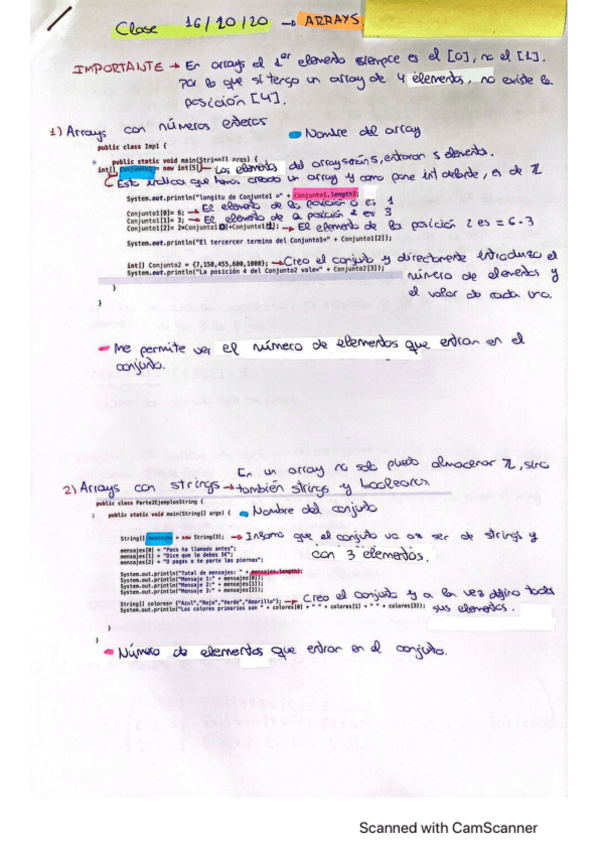 Clase 16/10/20 → ARRAYS
IMPORTANTE → En arrays el 1er elemento siempre es el [0], no el [1].
Por lo que si tengo un array de 4 elementos, no existe la
posición [4].
1) Arrays con números enteros
Nombre del array
public class Imp1 {
public static void main(String[] args) {
int[] Conjunto1 = new int[5]; → Los elementos del array serán 5, entraron 5 elementos.
Esto indica que hemos creado un array y como pone int delante, es de ℤ
System.out.println("longitu de Conjunto1 =" + Conjunto1.length);
Conjunto1[0]= 6; → El elemento de la posición 0 es 1
Conjunto1[1]= 3; → El elemento de la posición 2 es 3
Conjunto1[2]= 2*Conjunto1[0]+Conjunto1[1]; → El elemento de la posición 2 es = 6·3
System.out.println("El tercercer termino del Conjunto1=" + Conjunto1[2]);
int[] Conjunto2 = {7,150,455,600,1000}; → Creo el conjuto y directamente introduzco el
System.out.println("La posición 4 del Conjunto2 vale=" + Conjunto2[3]); número de elementos y
el valor de cada uno.
}
}
- Me permite ver el número de elementos que entran en el
conjunto.
En un array no solo puedo almacenar ℤ, sino
2) Arrays con strings → también strings y booleanos
public class Parte2EjemplosString {
public static void main(String[] args) {
Nombre del conjunto
String[] mensajes = new String[3]; → Informo que el conjuto va a ser de strings y
con 3 elementos.
mensajes[0] = "Paco ha llamado antes";
mensajes[1] = "Dice que le debes 5€";
mensajes[2] = "O pagas o te parte las piernas";
System.out.println("Total de mensajes: " + mensajes.length);
System.out.println("Mensaje 1:" + mensajes[0]);
System.out.println("Mensaje 2:" + mensajes[1]);
System.out.println("Mensaje 3:" + mensajes[2]);
String[] colores= {"Azul","Rojo","Verde","Amarillo"}; → Creo el conjunto y a la vez defino todos
System.out.println("Los colores primarios son " + colores[0] + " " + colores[1] + " " + colores[3]); sus elementos.
}
}
- Número de elementos que entran en el conjunto.
Scanned with CamScanner